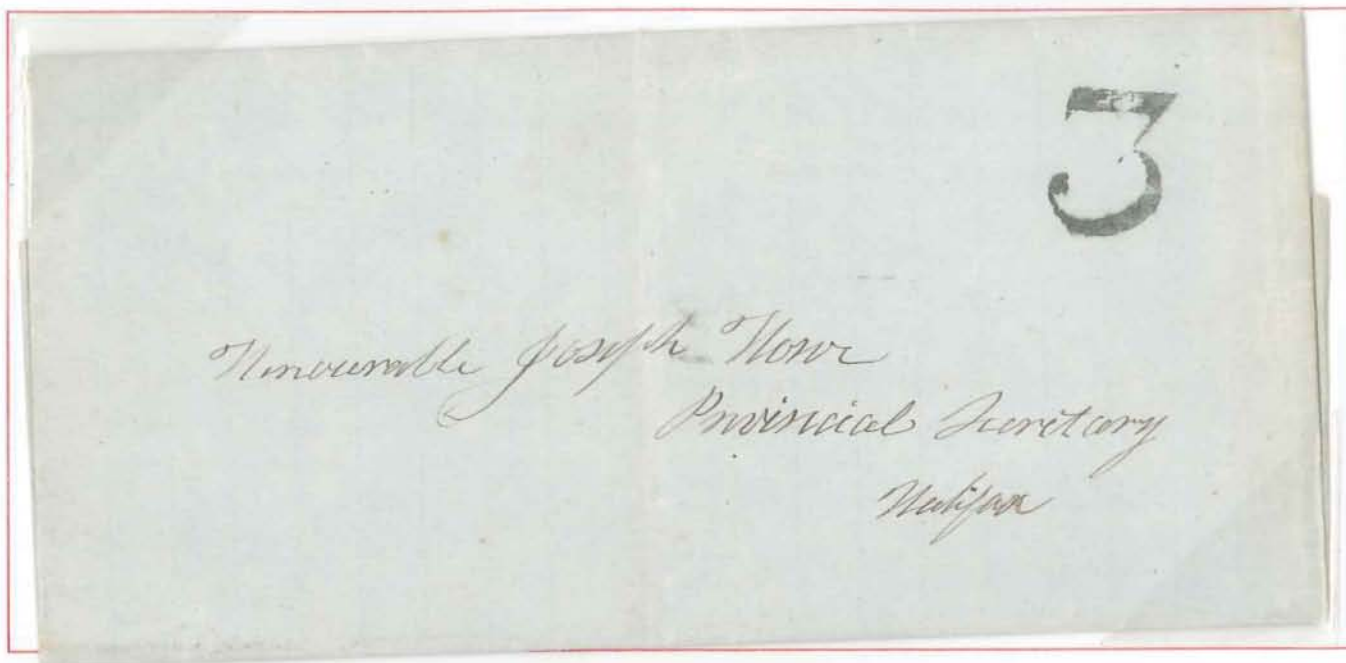 3
Honourable Joseph Howe
Provincial Secretary
Halifax